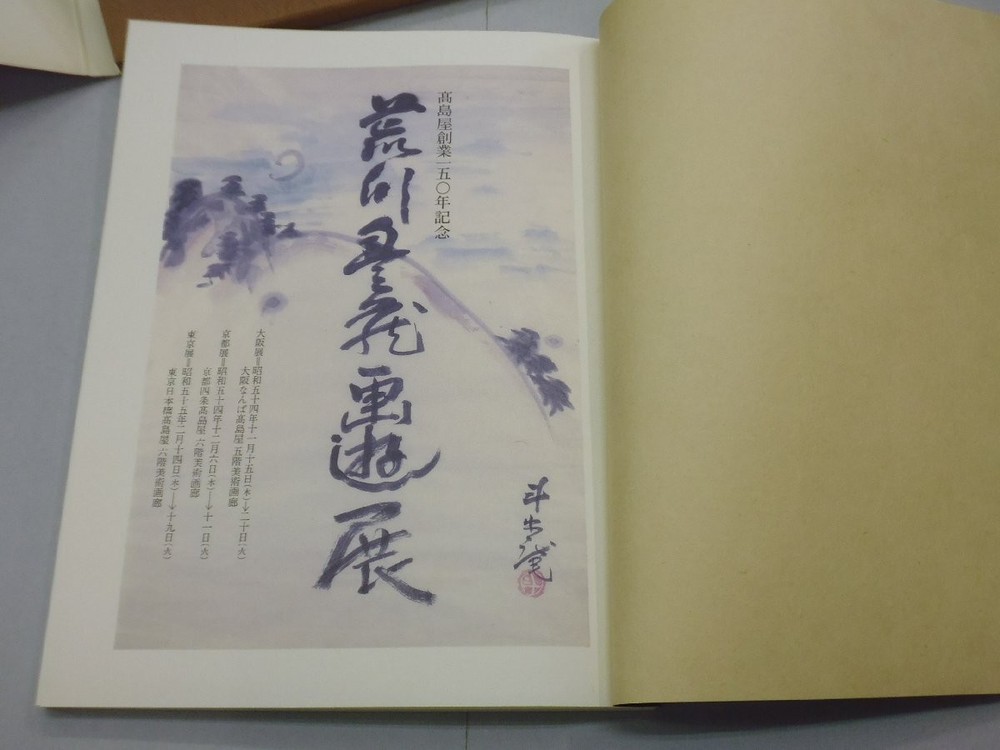 髙島屋創業一五〇年記念
荒川豊蔵画遊展
大阪展=昭和五十四年十一月十五日(木)→二十日(火)
大阪なんば髙島屋 五階美術画廊
京都展=昭和五十四年十二月六日(木)→十一日(火)
京都四条髙島屋 六階美術画廊
東京展=昭和五十五年二月十四日(木)→十九日(火)
東京日本橋髙島屋 六階美術画廊